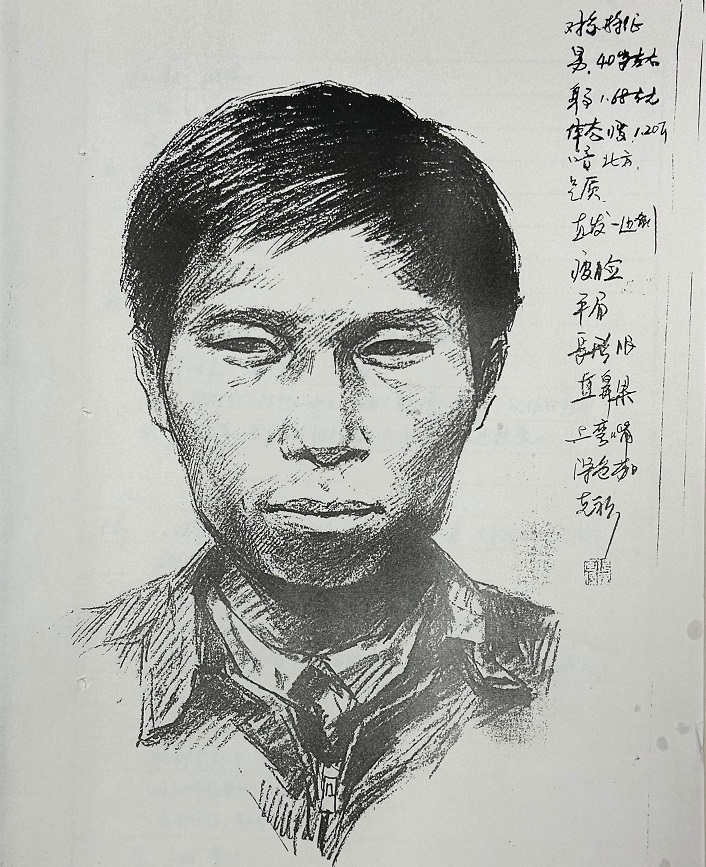 对象特征
男,40岁左右
身高1.68左右
体态瘦,120斤
口音北方.
气质.
直发一边倒
瘦脸
平眉
长形眼
直鼻梁
上弯嘴
深色夹
克衫